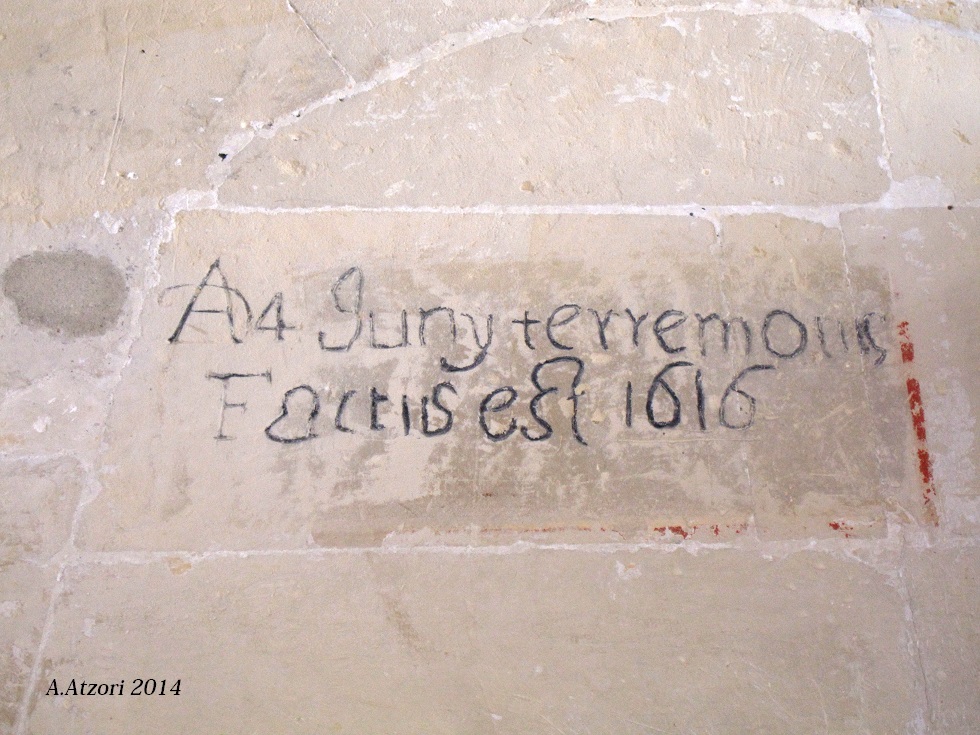 A 4 Juny terremotus
Factus est 1616
A.Atzori 2014